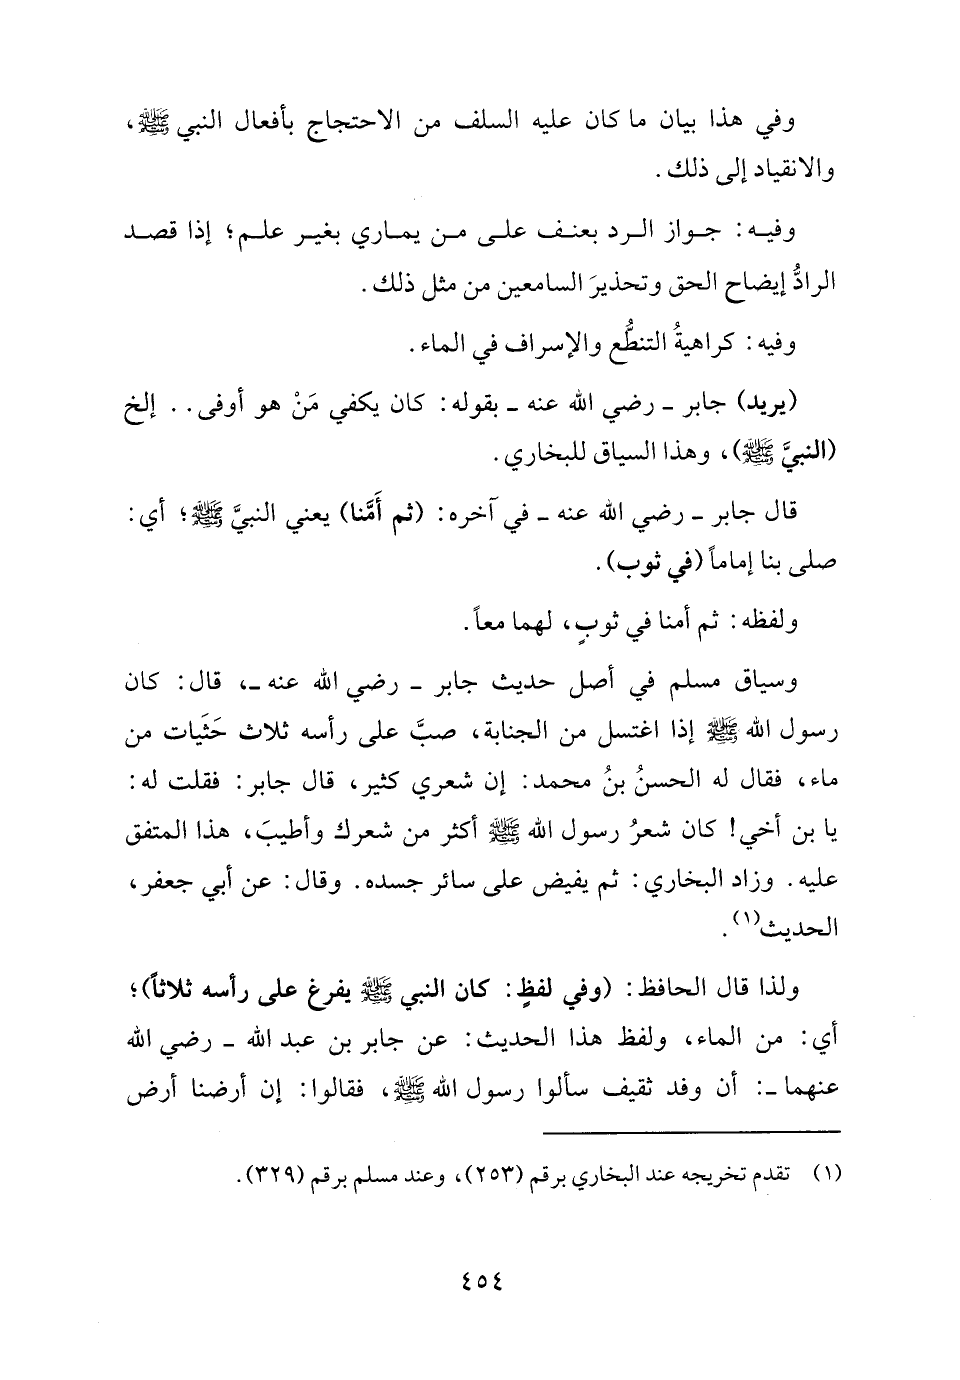 وفي هذا بيان ما كان عليه السلف من الاحتجاج بأفعال النبي ﷺ،
والانقياد إلى ذلك.
وفيه: جواز الرد بعنف على من يماري بغير علم؛ إذا قصد
الرادُّ إيضاح الحق وتحذيرَ السامعين من مثل ذلك.
وفيه: كراهيةُ التنطُّع والإسراف في الماء.
(يريد) جابر ـ رضي الله عنه ـ بقوله: كان يكفي مَنْ هو أوفى.. إلخ
(النبيَّ ﷺ)، وهذا السياق للبخاري.
قال جابر ـ رضي الله عنه ـ في آخره: (ثم أَمَّنا) يعني النبيَّ ﷺ؛ أي:
صلى بنا إماماً (في ثوب).
ولفظه: ثم أمنا في ثوبٍ، لهما معاً.
وسياق مسلم في أصل حديث جابر ـ رضي الله عنه ـ، قال: كان
رسول الله ﷺ إذا اغتسل من الجنابة، صبَّ على رأسه ثلاث حَثَيات من
ماء، فقال له الحسنُ بنُ محمد: إن شعري كثير، قال جابر: فقلت له:
يا بن أخي! كان شعرُ رسول الله ﷺ أكثر من شعرك وأطيبَ، هذا المتفق
عليه. وزاد البخاري: ثم يفيض على سائر جسده. وقال: عن أبي جعفر،
الحديث(١).
ولذا قال الحافظ: (وفي لفظٍ: كان النبي ﷺ يفرغ على رأسه ثلاثاً)؛
أي: من الماء، ولفظ هذا الحديث: عن جابر بن عبد الله ـ رضي الله
عنهما ـ: أن وفد ثقيف سألوا رسول الله ﷺ، فقالوا: إن أرضنا أرض
(١) تقدم تخريجه عند البخاري برقم (٢٥٣)، وعند مسلم برقم (٣٢٩).
٤٥٤